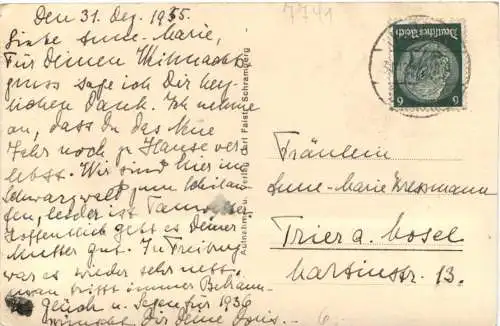 Den 31. Dez. 1935.
Liebe Anne-Marie,
Für Deinen Weihnachts
gruss sage ich Dir herz
lichen Dank. Ich nehme
an, dass Du das Neue
Jahr noch zu Hause ver
lebst. Wir sind hier im
Schwarzwald zum Schilau
fen, leider ist Tauwetter
Hoffentlich geht es Deiner
Mutter gut. In Freiburg
war es wieder sehr nett.
man trifft immer Bekann
Glück u. Segen für 1936
wünscht Dir Deine Doris.
Aufnahme u. Verlag Carl Faist, Schramberg
7741
Deutsches Reich
6 6
Fräulein
Anne-Marie Kressmann
Trier a. Mosel
Martinstr. 13.